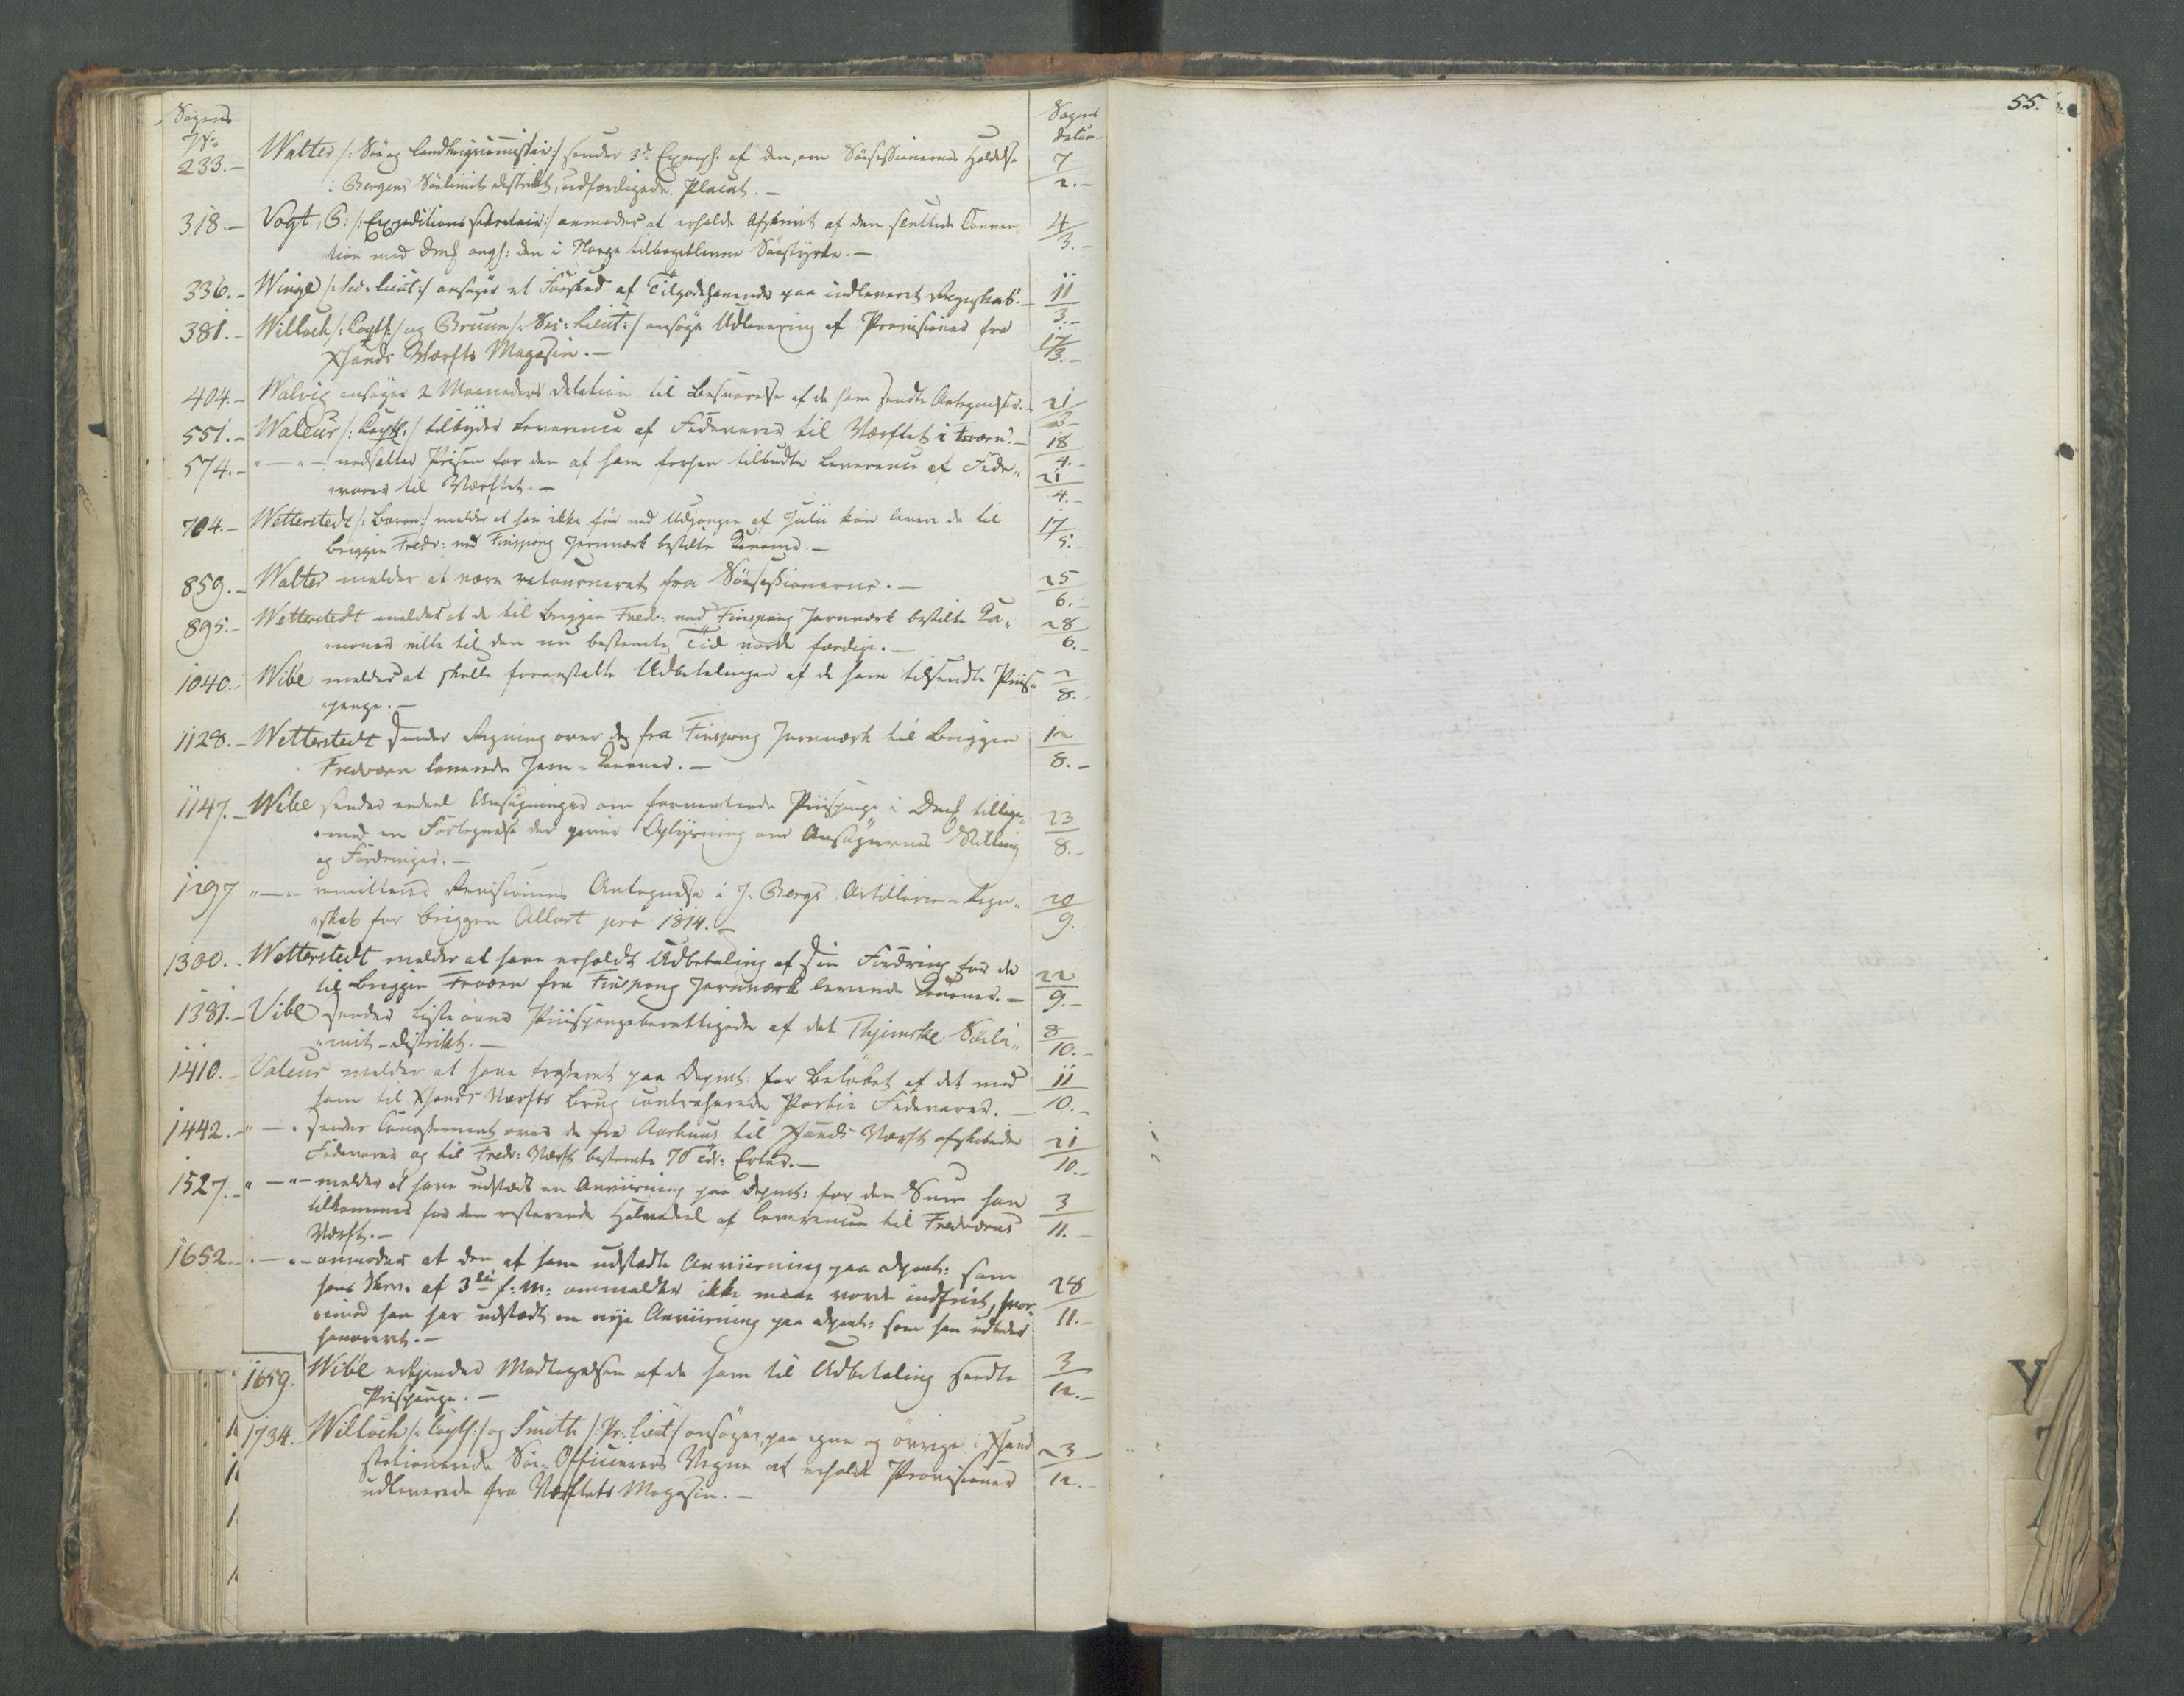 55.
Sagens No
Sagens datum
233.- Walter /: Söe og Landkrigscommissair:/ sender 3de Exempl. af den, om Söesessionernes Holdelse 7/2.-
i Bergens Söelimits distrikt, udfærdigede Placat.-
318.- Vogt, C: /: Expeditions Secretair:/ anmoder at erholde Afskrivt af den sluttede Conven 4/3.-
tion med Dmk angh: den i Norge tilbageblevne Söestyrke.-
336.- Winge /: Sec: Lieut:/ ansöger et Forskud af Tilgodehavende paa indleveret Regnskab.- 11/3.-
381.- Willoch /: Capt:/ og Bruun /: Sec: Lieut:/ ansöge Udlevering af Provisioner fra 17/3.-
Xsands Værfts Magasin.-
404.- Walvig ansöger 2 Maaneders dilation til Besvarelse af de ham sendte Antegnelser.- 21/3-
551.- Waleur /: Capt:/ tilbyder Leverence af Fedevarer til Værftet i Fværn.- 18/4.-
574.- " — " — nedsætter Prisen for den af ham forhen tilbudte Leverence af Fede" 21/4.-
varer til Værftet.-
704.- Wetterstedt /: Baron:/ melder at han ikke för ved Udgangen af Julii kan levere de til 17/5.-
Briggen Fredr: ved Finspong Jernværk bestilte Kanoner.-
859.- Walter melder at være retourneret fra Söesessionerne.- 25/6.-
895.- Wetterstedt melder at de til Briggen Fredr: ved Finspong Jernværk bestilte Ka" 28/6.-
"noner ville til den nu bestemte Tid vorde færdige.-
1040.- Wibe melder at skulle foranstalte Udbetalingen af de ham tilsendte Priis" 2/8.-
"penge.-
1128.- Wetterstedt sender Regning over de fra Finspong Jernværk til Briggen 12/8.-
Fredværn leverede Jern-Kanoner.-
1147.- Wibe sender endeel Ansögninger om forventende Priispenge i Dmk tillige" 23/8.-
"med en Fortegnelse der giver Oplysning om Ansögernes Stilling
og Fordringer.-
1297 " — " — remitterer Revisionens Antegnelse i J. Bergs Artillerie-Regn" 20/9.
"skab for Briggen Allart pro 1814.-
1300.- Wetterstedt melder at have erholdt Udbetaling af sin Fordring for de 22/9.-
til Briggen Fværn fra Finspong Jernværk leverede Kanoner.-
1381.- Vibe sender Liste over Priispengeberettigede af det Thjemske Söeli" 8/10.-
"mits-distrikt.-
1410.- Valeur melder at have trasseret paa Depmt: for Belöbet af det med 11/10.-
ham til Xsands Værfts Brug contraherede Partie Fedevarer.-
1442.- " — " sender Connossement over de fra Aarhuus til Xsands Værft afskibede 21/10.-
Fedevarer og til Fredr: Værft bestemte 70 Tdr: Erter.-
1527.- " — " — melder at have udstædt en Anviisning paa Depmt: for den Sum han 3/11.-
tilkommer for den resterende Halvdeel af Leverencen til Fredværns
Værft.-
1652.- " — " — anmoder at den af ham udstædte Anviisning paa Depmt: som 28/11.-
hans Skr. af 3die f: M: ommelder ikke maae vorde indfriet, hvor"
"imod han har udstædt en nye Anviisning paa Depmt: som han udbeder
honoreret.-
1659. Wibe erkjender Modtagelsen af de ham til Udbetaling sendte 3/12.-
Priispenge.-
1734. Willoch /: Capt:/ og Smith /: Pr: Lieut:/ ansöger paa egne og övrige i Xsand 23/12.-
stationerede Söe-Officierers Vegne at erholde Provisioner
udleverede fra Værftets Magasin.-
Y